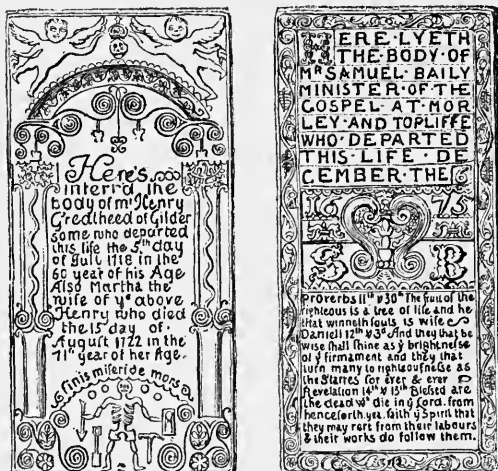 Here's
interr'd the
body of mr Henry
Gredlheed of Gilder
some who departed
this life the 5th day
of July 1718 in the
60 year of his Age
Also Martha the
wife of ye above
Henry who died
the 15 day of
August 1722 in the
71 year of her Age.
finis miseriæ mors
HERE·LYETH
THE·BODY·OF
MR SAMUEL·BAILY
MINISTER·OF·THE
GOSPEL·AT·MOR
LEY·AND TOPLIFFE
WHO·DEPARTED
THIS·LIFE·DE
CEMBER·THE 6
1675
S B
Proverbs 11th v 30th The fruit of the
righteous is a tree of life and he
that winneth souls is wise
Daniell 12th v 3d And they that be
wise shall shine as ye brightnesse
of ye firmament and they that
turn many to righteousnesse as
the Starres for ever & ever
Revelation 14th v 13th Blessed are
the dead wch die in ye Lord. from
henceforth yea. saith ye Spirit that
they may rest from their labours
& their works do follow them.